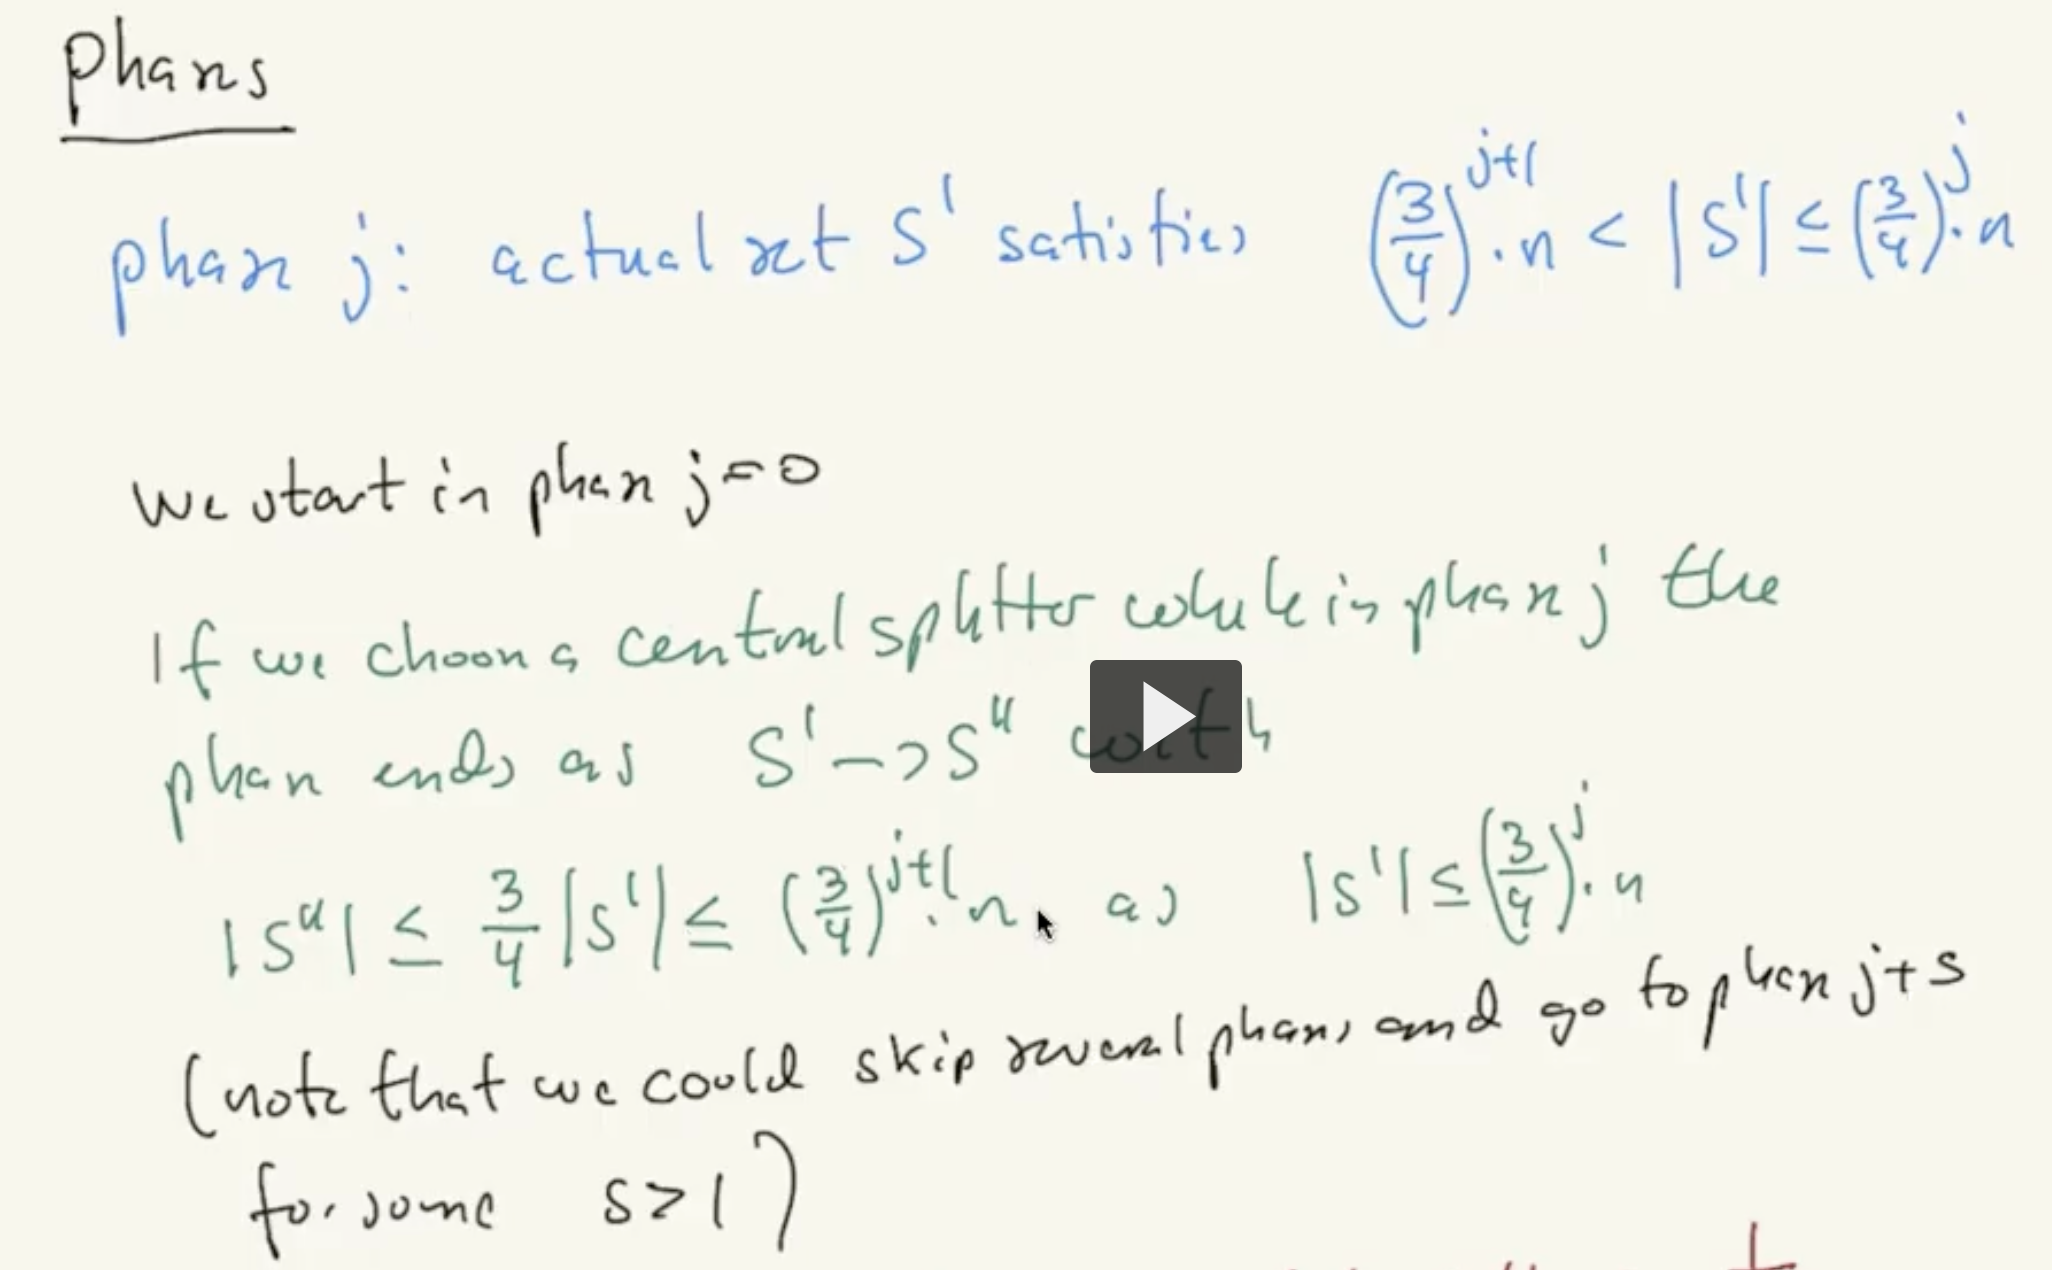 Phases
phase j: actual set S' satisfies (3/4)^{j+1} · n < |S'| ≤ (3/4)^j · n
We start in phase j=0
If we choose a central splitter while in phase j the
phase ends as S' -> S'' with
|S''| ≤ 3/4 |S'| ≤ (3/4)^{j+1} · n as |S'| ≤ (3/4)^j · n
(note that we could skip several phases and go to phase j+s
for some s>1)